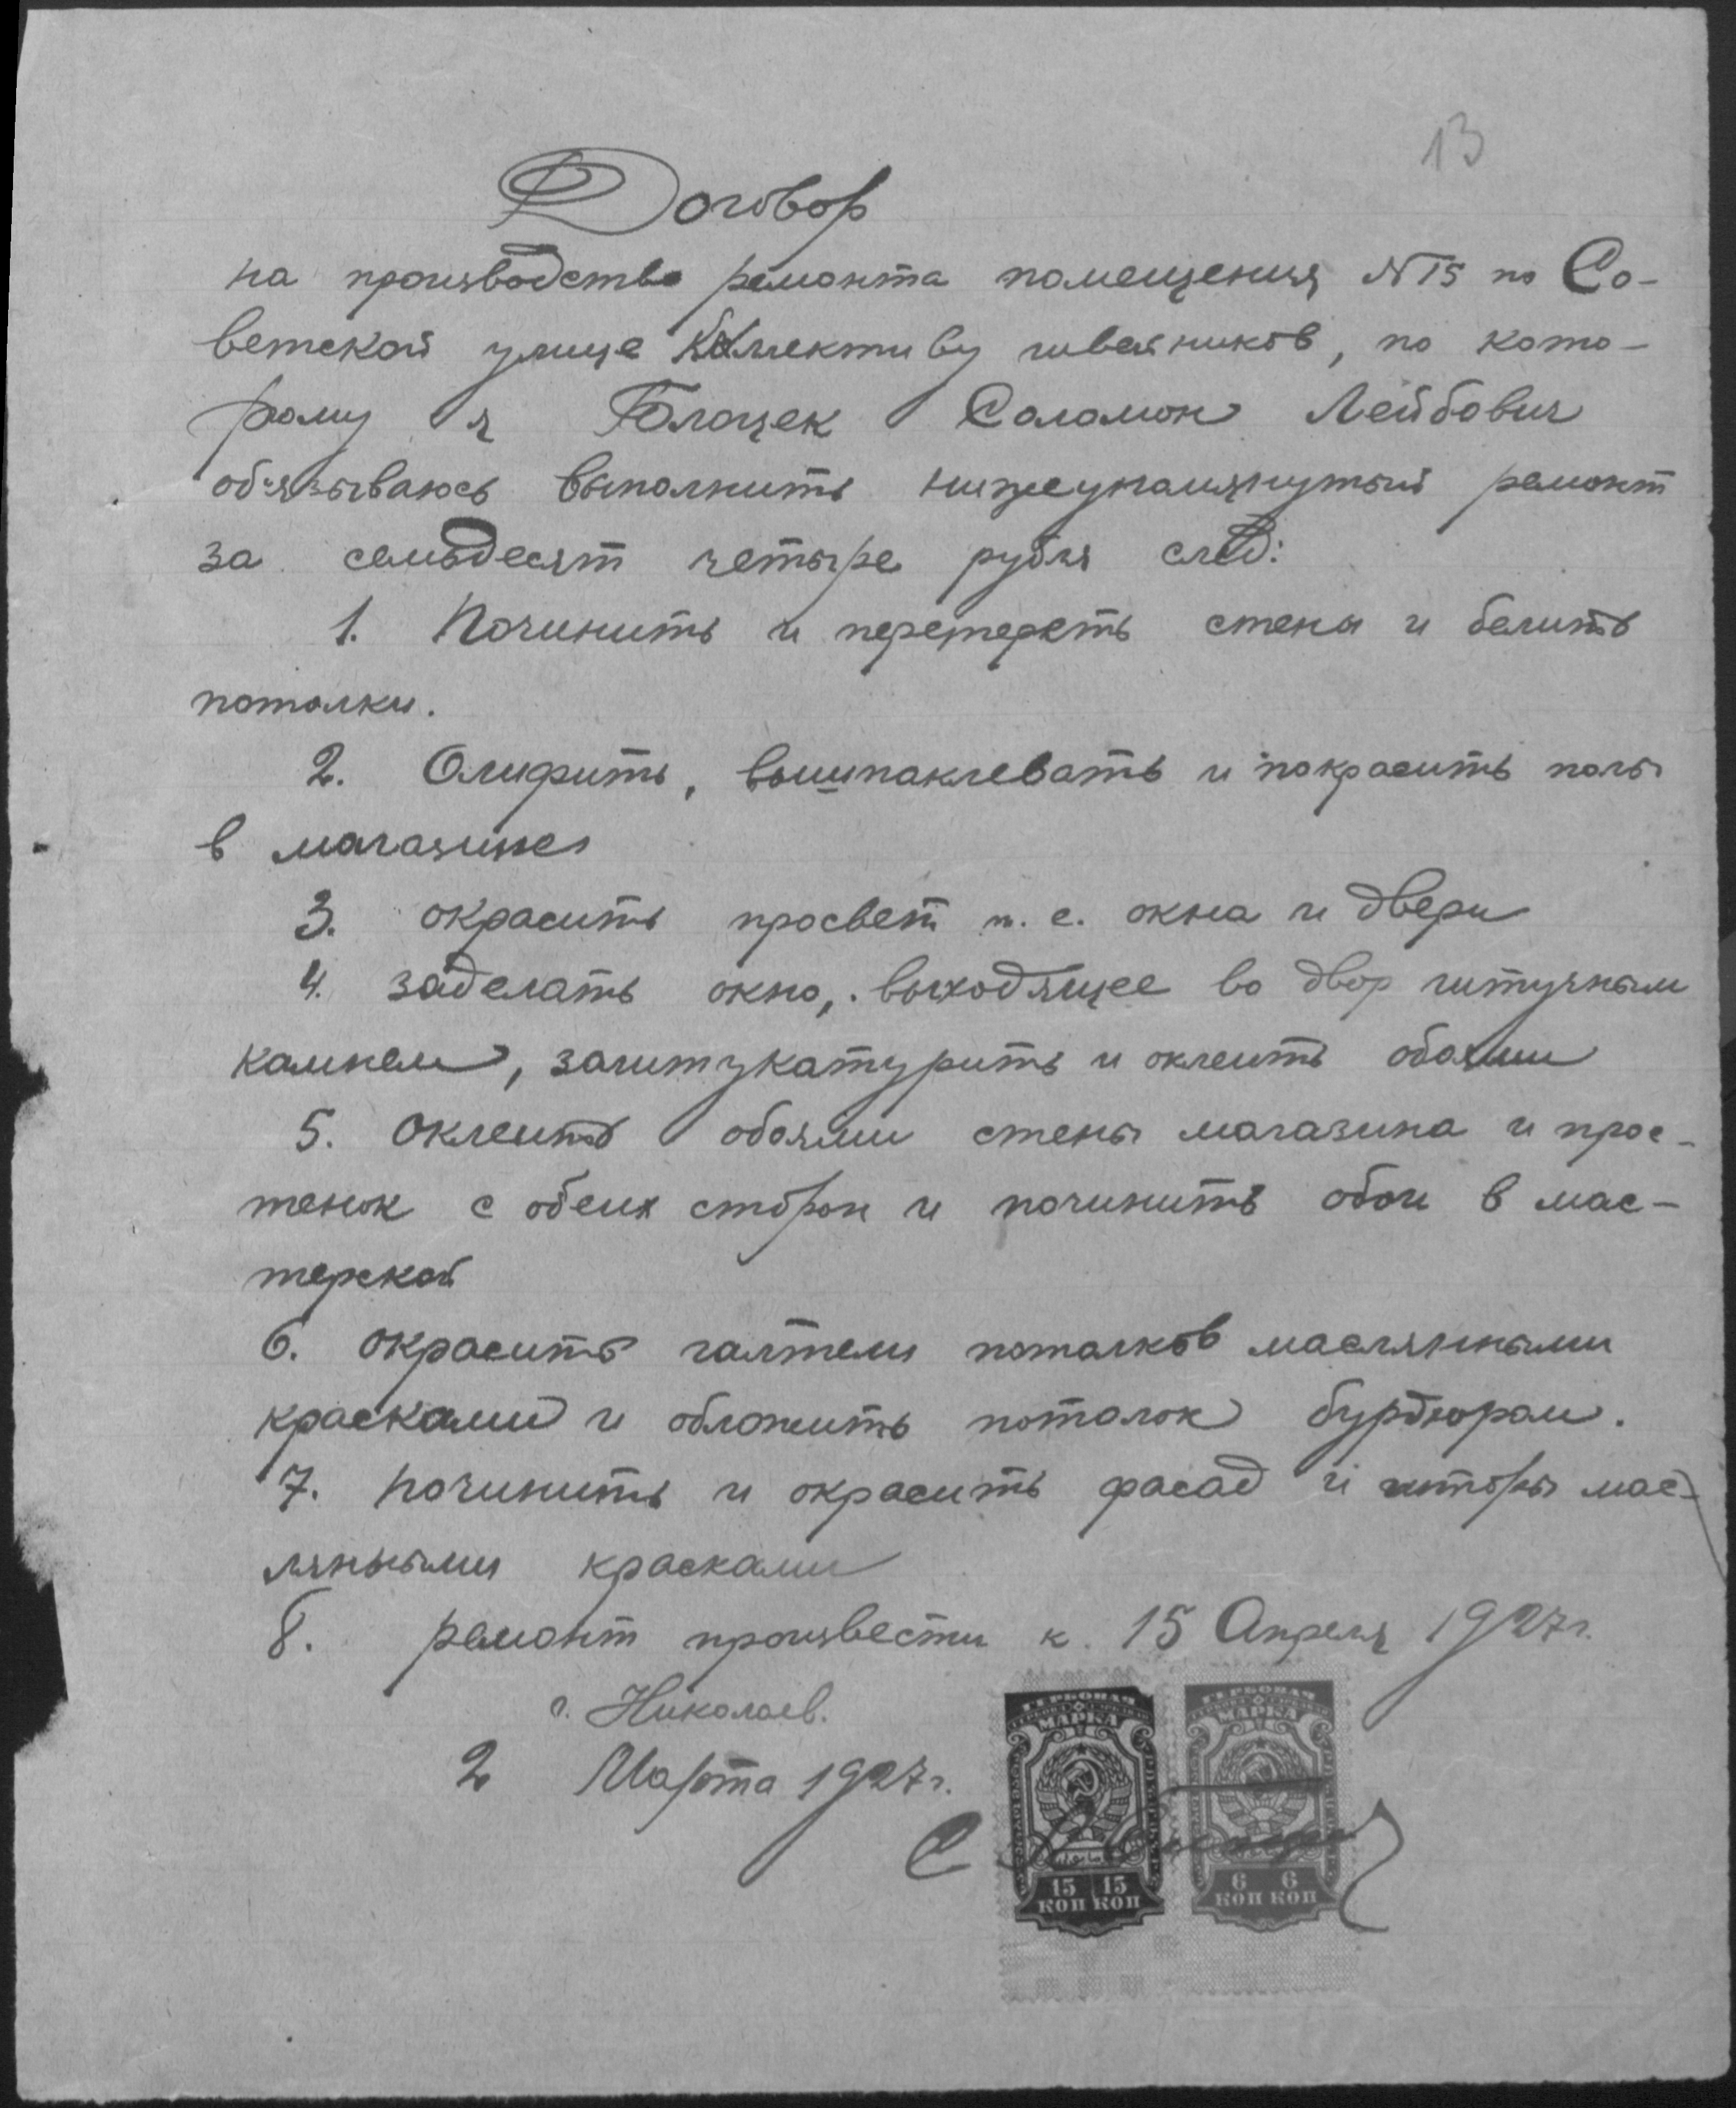 13
Договор
на производство ремонта помещения №15 по Со-
ветской улице Коллективу швейников, по кото-
рому я Блощек Соломон Лейбович
обязываюсь выполнить нижеупомянутый ремонт
за семьдесят четыре рубля след:
1. Починить и перетереть стены и белить
потолки.
2. Олифить, вышпаклевать и покрасить полы
в магазине
3. окрасить просвет т. е. окна и двери
4. заделать окно, выходящее во двор штучным
камнем, заштукатурить и оклеить обоями
5. Оклеить обоями стены магазина и прос-
тенок с обеих сторон и починить обои в мас-
терской
6. окрасить галтели потолков маслянными
красками и обложить потолок бурдюром.
7. починить и окрасить фасад и шторы мас-
ляными красками
8. ремонт произвести к 15 Апреля 1927 г.
г. Николаев.
2 Марта 1927 г.
ГЕРБОВАЯ
МАРКА
15 15
КОП КОП
ГЕРБОВАЯ
МАРКА
6 6
КОП КОП